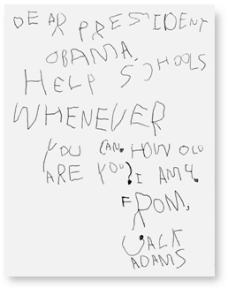 DEAR PRESIDENT
OBAMA.
HELP SCHOOLS
WHENEVER
YOU CAN. HOW OLD
ARE YOU? I AM 4.
FROM,
JACK
ADAMS